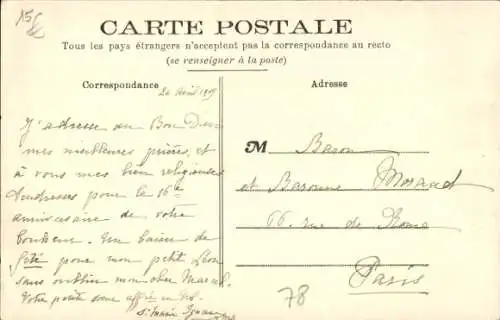 15
CARTE POSTALE
Tous les pays étrangers n'acceptent pas la correspondance au recto
(se renseigner à la poste)
Correspondance
Adresse
20 Avril 1909
J'adresse au Bon Dieu
mes meilleures prières, et
à vous mes bien religieuses
tendresses pour le 16e
anniversaire de votre
bonheur. Un baiser de
fête pour mon petit Léon
sans oublier mon cher Marcel.
Votre petite sœur affec. en
Sr Marie
M Baron
et Baronne Morand
66 rue de Rome
Paris
78